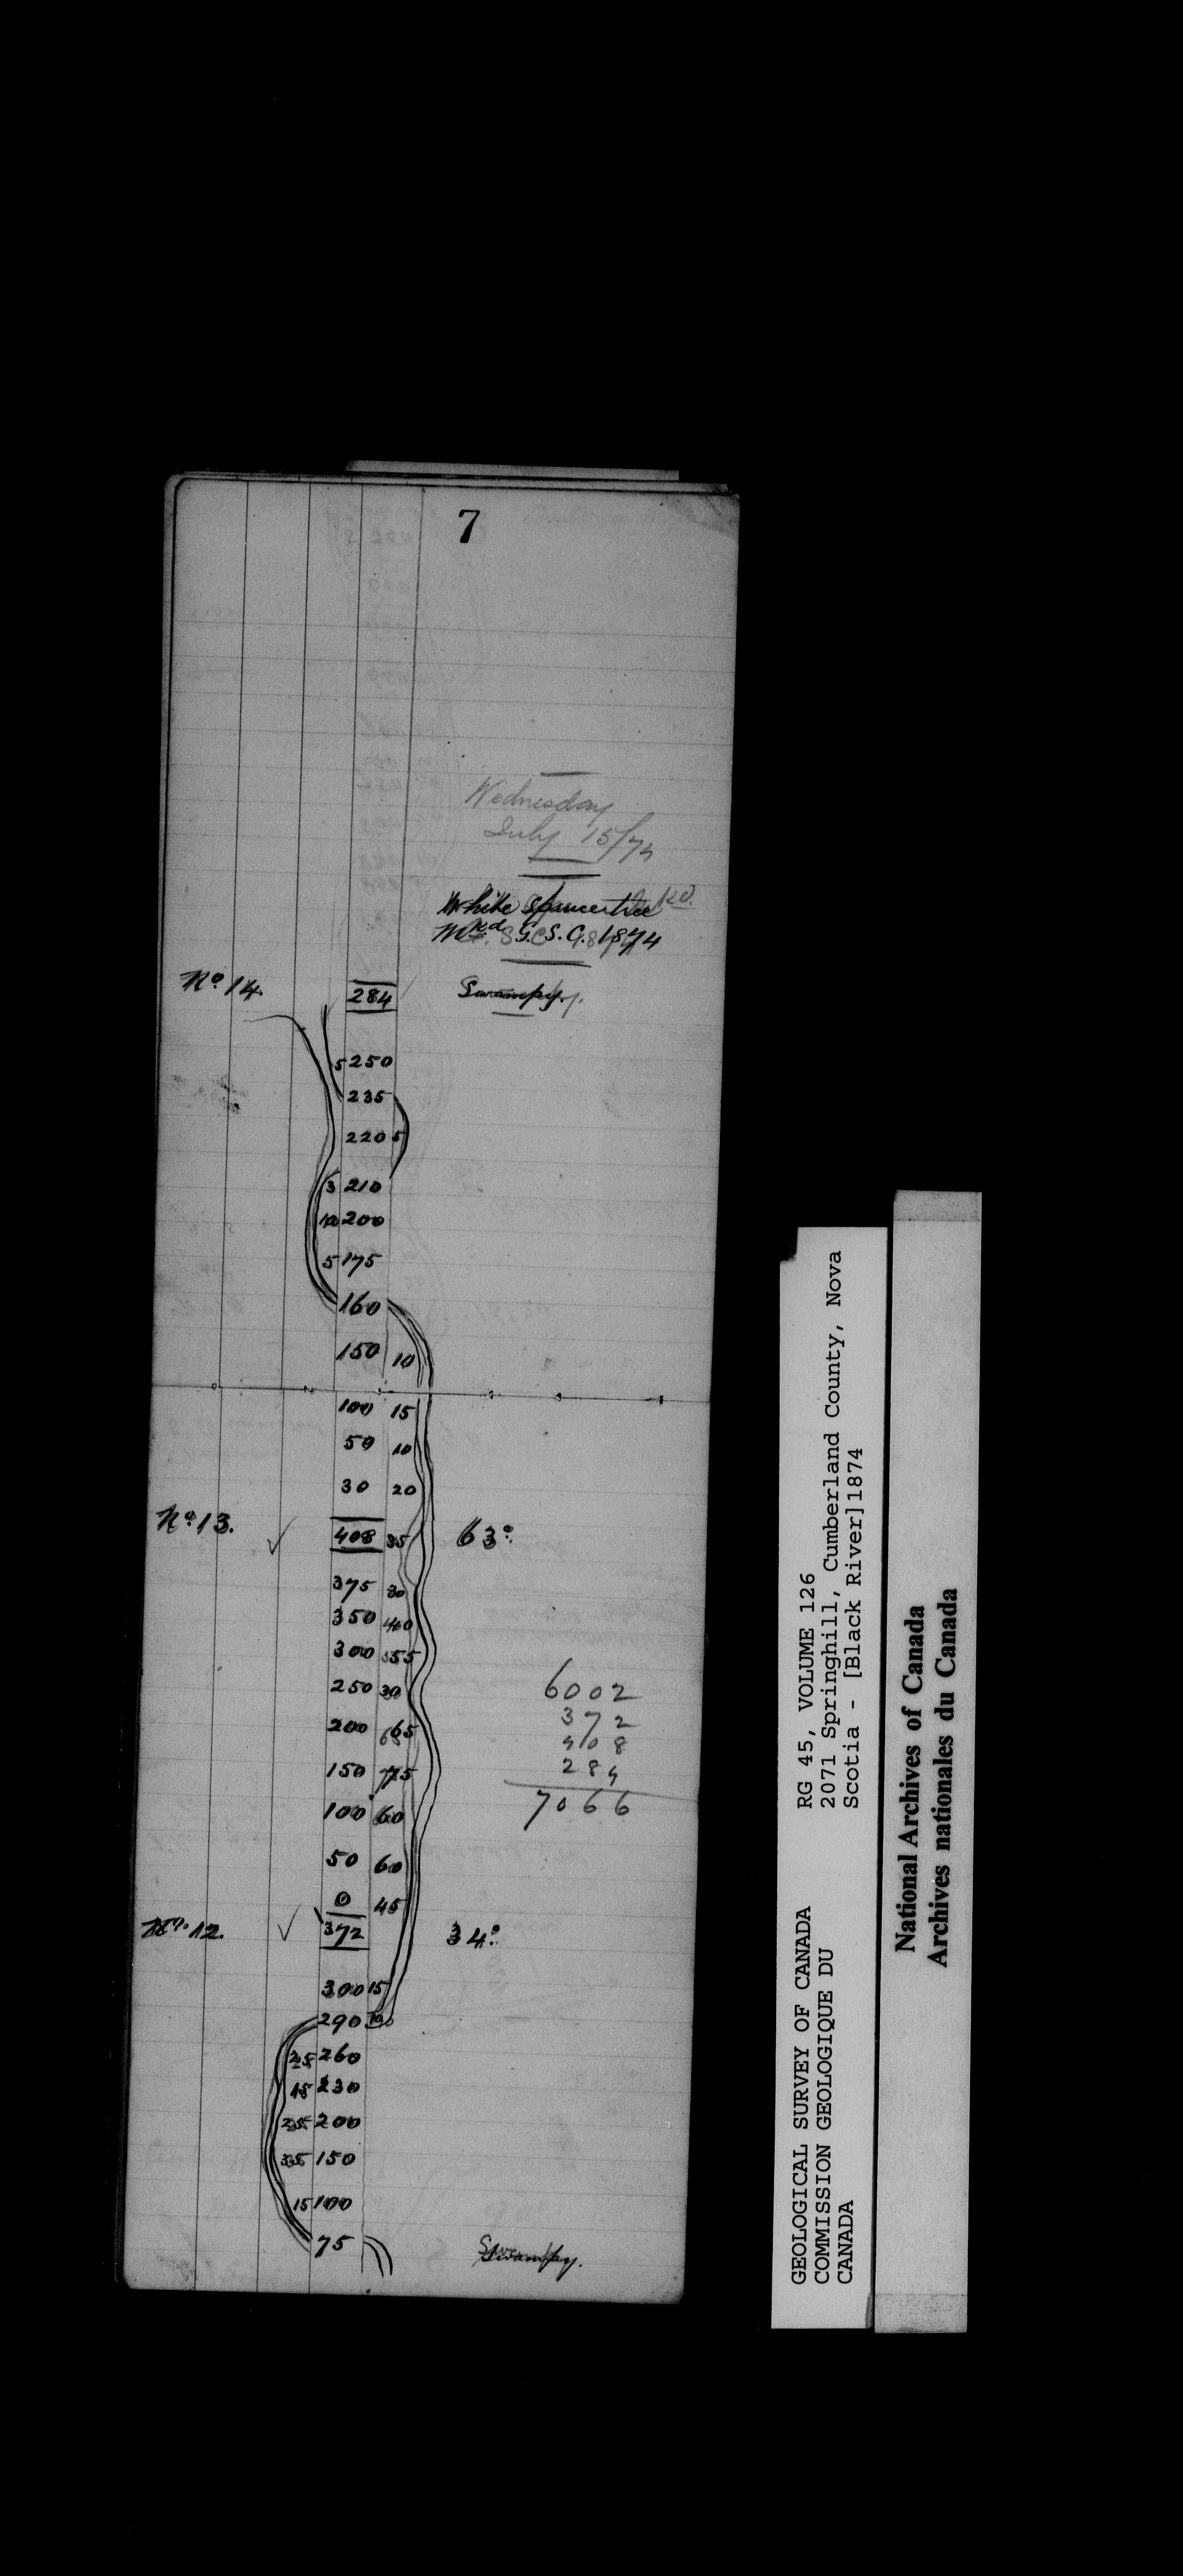 7
Wednesday
July 15/74
White Spruce tree
Mkd G. S. C. 1874
No. 14. 284 Swampy.
5 250
235
220 5
3 210
10 200
5 175
160
150 10
100 15
50 10
30 20
No. 13. ✓ 408 35 63°
375 30
350 40
300 55
250 30
200 65
150 75
100 60
50 60
0 45
6002
372
408
284
7066
No. 12. ✓ 372 34°
300 15
290 10
25 260
15 230
25 200
35 150
15 100
75 Swampy.
GEOLOGICAL SURVEY OF CANADA
COMMISSION GEOLOGIQUE DU
CANADA
RG 45, VOLUME 126
2071 Springhill, Cumberland County, Nova
Scotia - [Black River]1874
National Archives of Canada
Archives nationales du Canada